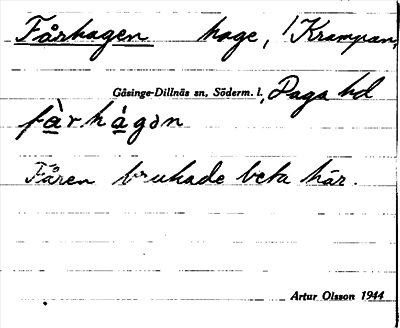 Fårhagen hage, Krampan,
Gåsinge-Dillnäs sn, Söderm. l., Daga hd
fà̱rhá̱gən
Fåren brukade beta här.
Artur Olsson 1944